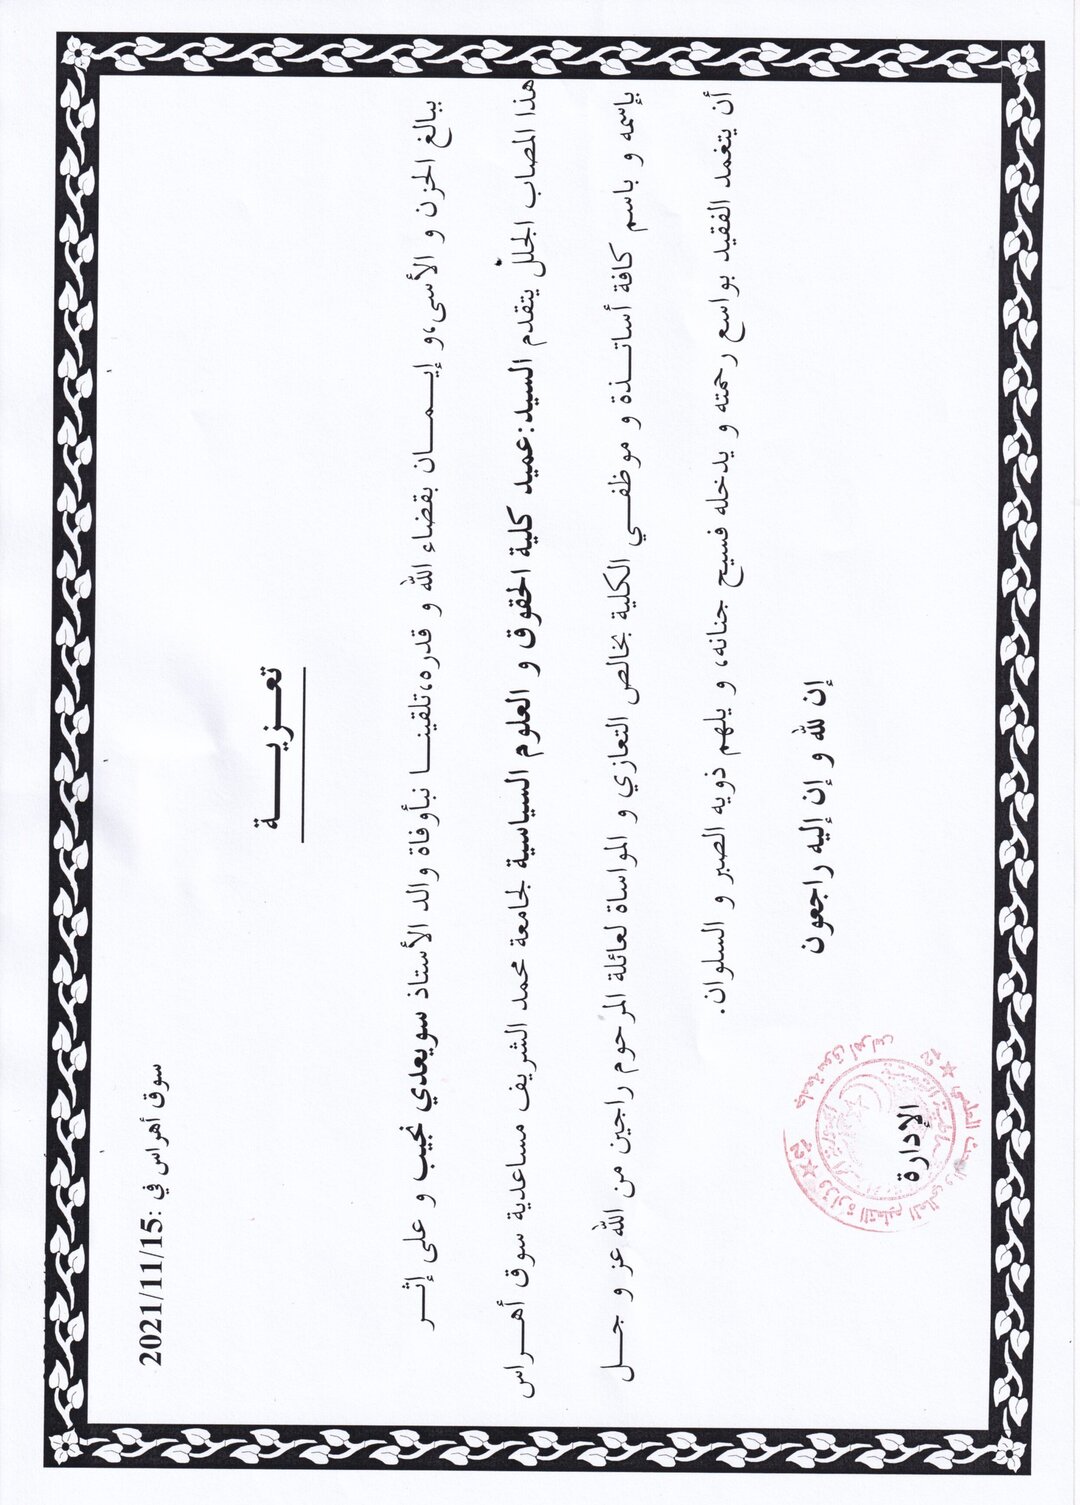 سوق أهراس في :2021/11/15
تعـزيـــــة
ببالغ الحزن و الأسى،و إيـمـــان بقضاء الله و قدره،تلقينـــا نبأوفاة والد الأستاذ سويعدي نجيب و على إثـــر
هذا المصاب الجلل يتقدم السيد:عميد كلية الحقوق و العلوم السياسية لجامعة محمد الشريف مساعدية سوق أهـــراس
بإسمه و باسم كافة أساتـــذة و موظفـــي الكلية بخالص التعازي و المواساة لعائلة المرحوم راجين من الله عز و جـــل
أن يتغمد الفقيد بواسع رحمته و يدخله فسيح جنانه، و يلهم ذويه الصبر و السلوان.
إن لله و إن إليه راجعون
الإدارة
وزارة التعليم العالي و البحث العلمي
جامعة سوق أهراس